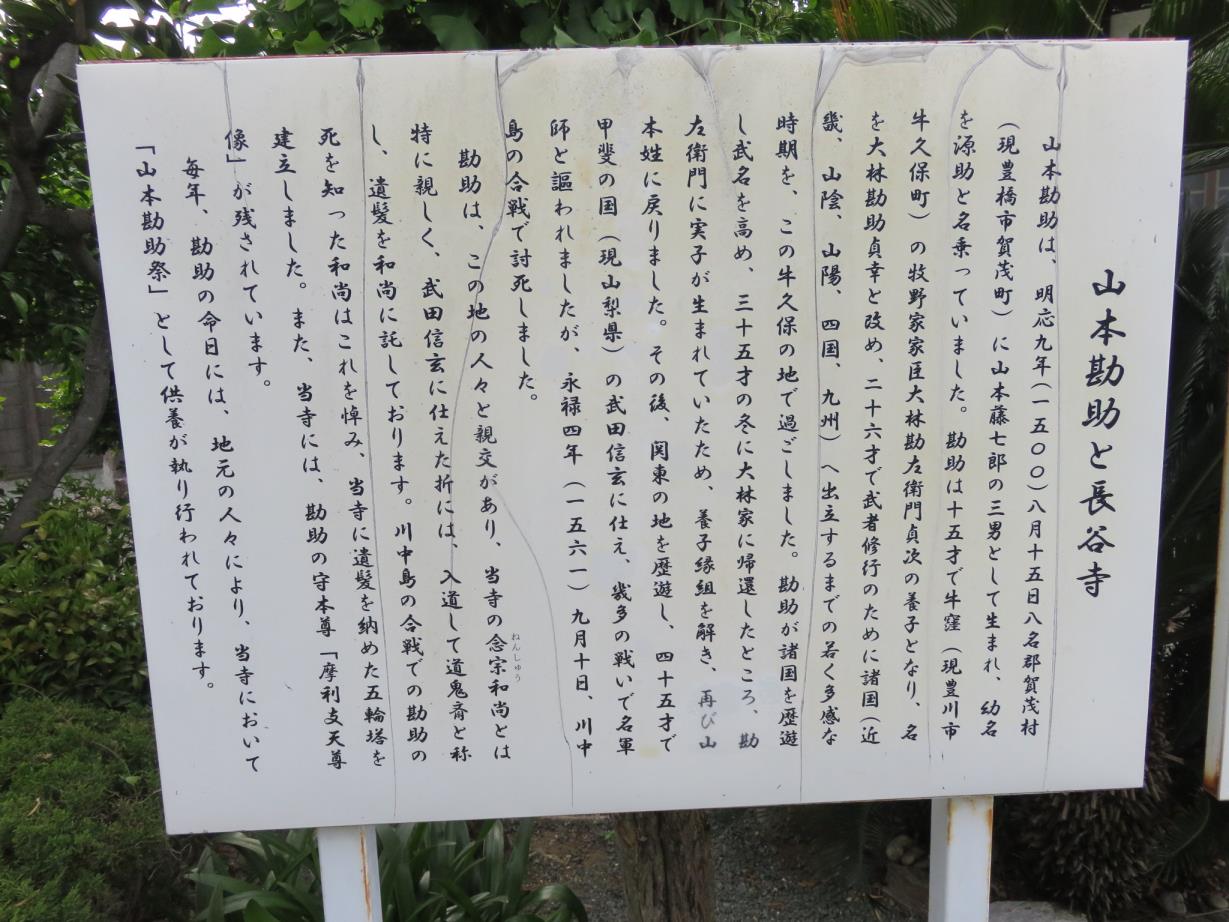 山本勘助と長谷寺
山本勘助は、明応九年(一五〇〇)八月十五日八名郡賀茂村
(現豊橋市賀茂町)に山本藤七郎の三男として生まれ、幼名
を源助と名乗っていました。勘助は十五才で牛窪(現豊川市
牛久保町)の牧野家家臣大林勘左衛門貞次の養子となり、名
を大林勘助貞幸と改め、二十六才で武者修行のために諸国(近
畿、山陰、山陽、四国、九州)へ出立するまでの若く多感な
時期を、この牛久保の地で過ごしました。勘助が諸国を歴遊
し武名を高め、三十五才の冬に大林家に帰還したところ、勘
左衛門に実子が生まれていたため、養子縁組を解き、再び山
本姓に戻りました。その後、関東の地を歴遊し、四十五才で
甲斐の国(現山梨県)の武田信玄に仕え、幾多の戦いで名軍
師と謳われましたが、永禄四年(一五六一)九月十日、川中
島の合戦で討死しました。
勘助は、この地の人々と親交があり、当寺の念宗和尚とは
ねんしゅう
特に親しく、武田信玄に仕えた折には、入道して道鬼斎と称
し、遺髪を和尚に託しております。川中島の合戦での勘助の
死を知った和尚はこれを悼み、当寺に遺髪を納めた五輪塔を
建立しました。また、当寺には、勘助の守本尊「摩利支天尊
像」が残されています。
毎年、勘助の命日には、地元の人々により、当寺において
「山本勘助祭」として供養が執り行われております。